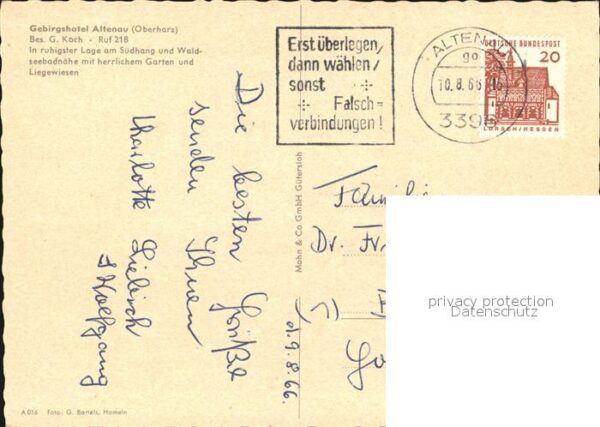 Gebirgshotel Altenau (Oberharz)
Bes. G. Koch - Ruf 218
In ruhigster Lage am Südhang und Wald-
seebadnähe mit herrlichem Garten und
Liegewiesen
Erst überlegen,
dann wählen,
sonst
Falsch=
verbindungen!
ALTENAU
10.8.66
3396
DEUTSCHE BUNDESPOST
20
LORSCH/HESSEN
Die besten Grüße
senden Ihnen
Charlotte Liebisch
Wolfgang
d. 9.8.66.
Mohn & Co GmbH Gütersloh
Familie
Dr. Fr
privacy protection
Datenschutz
A 016 Foto: G. Bartels, Hameln